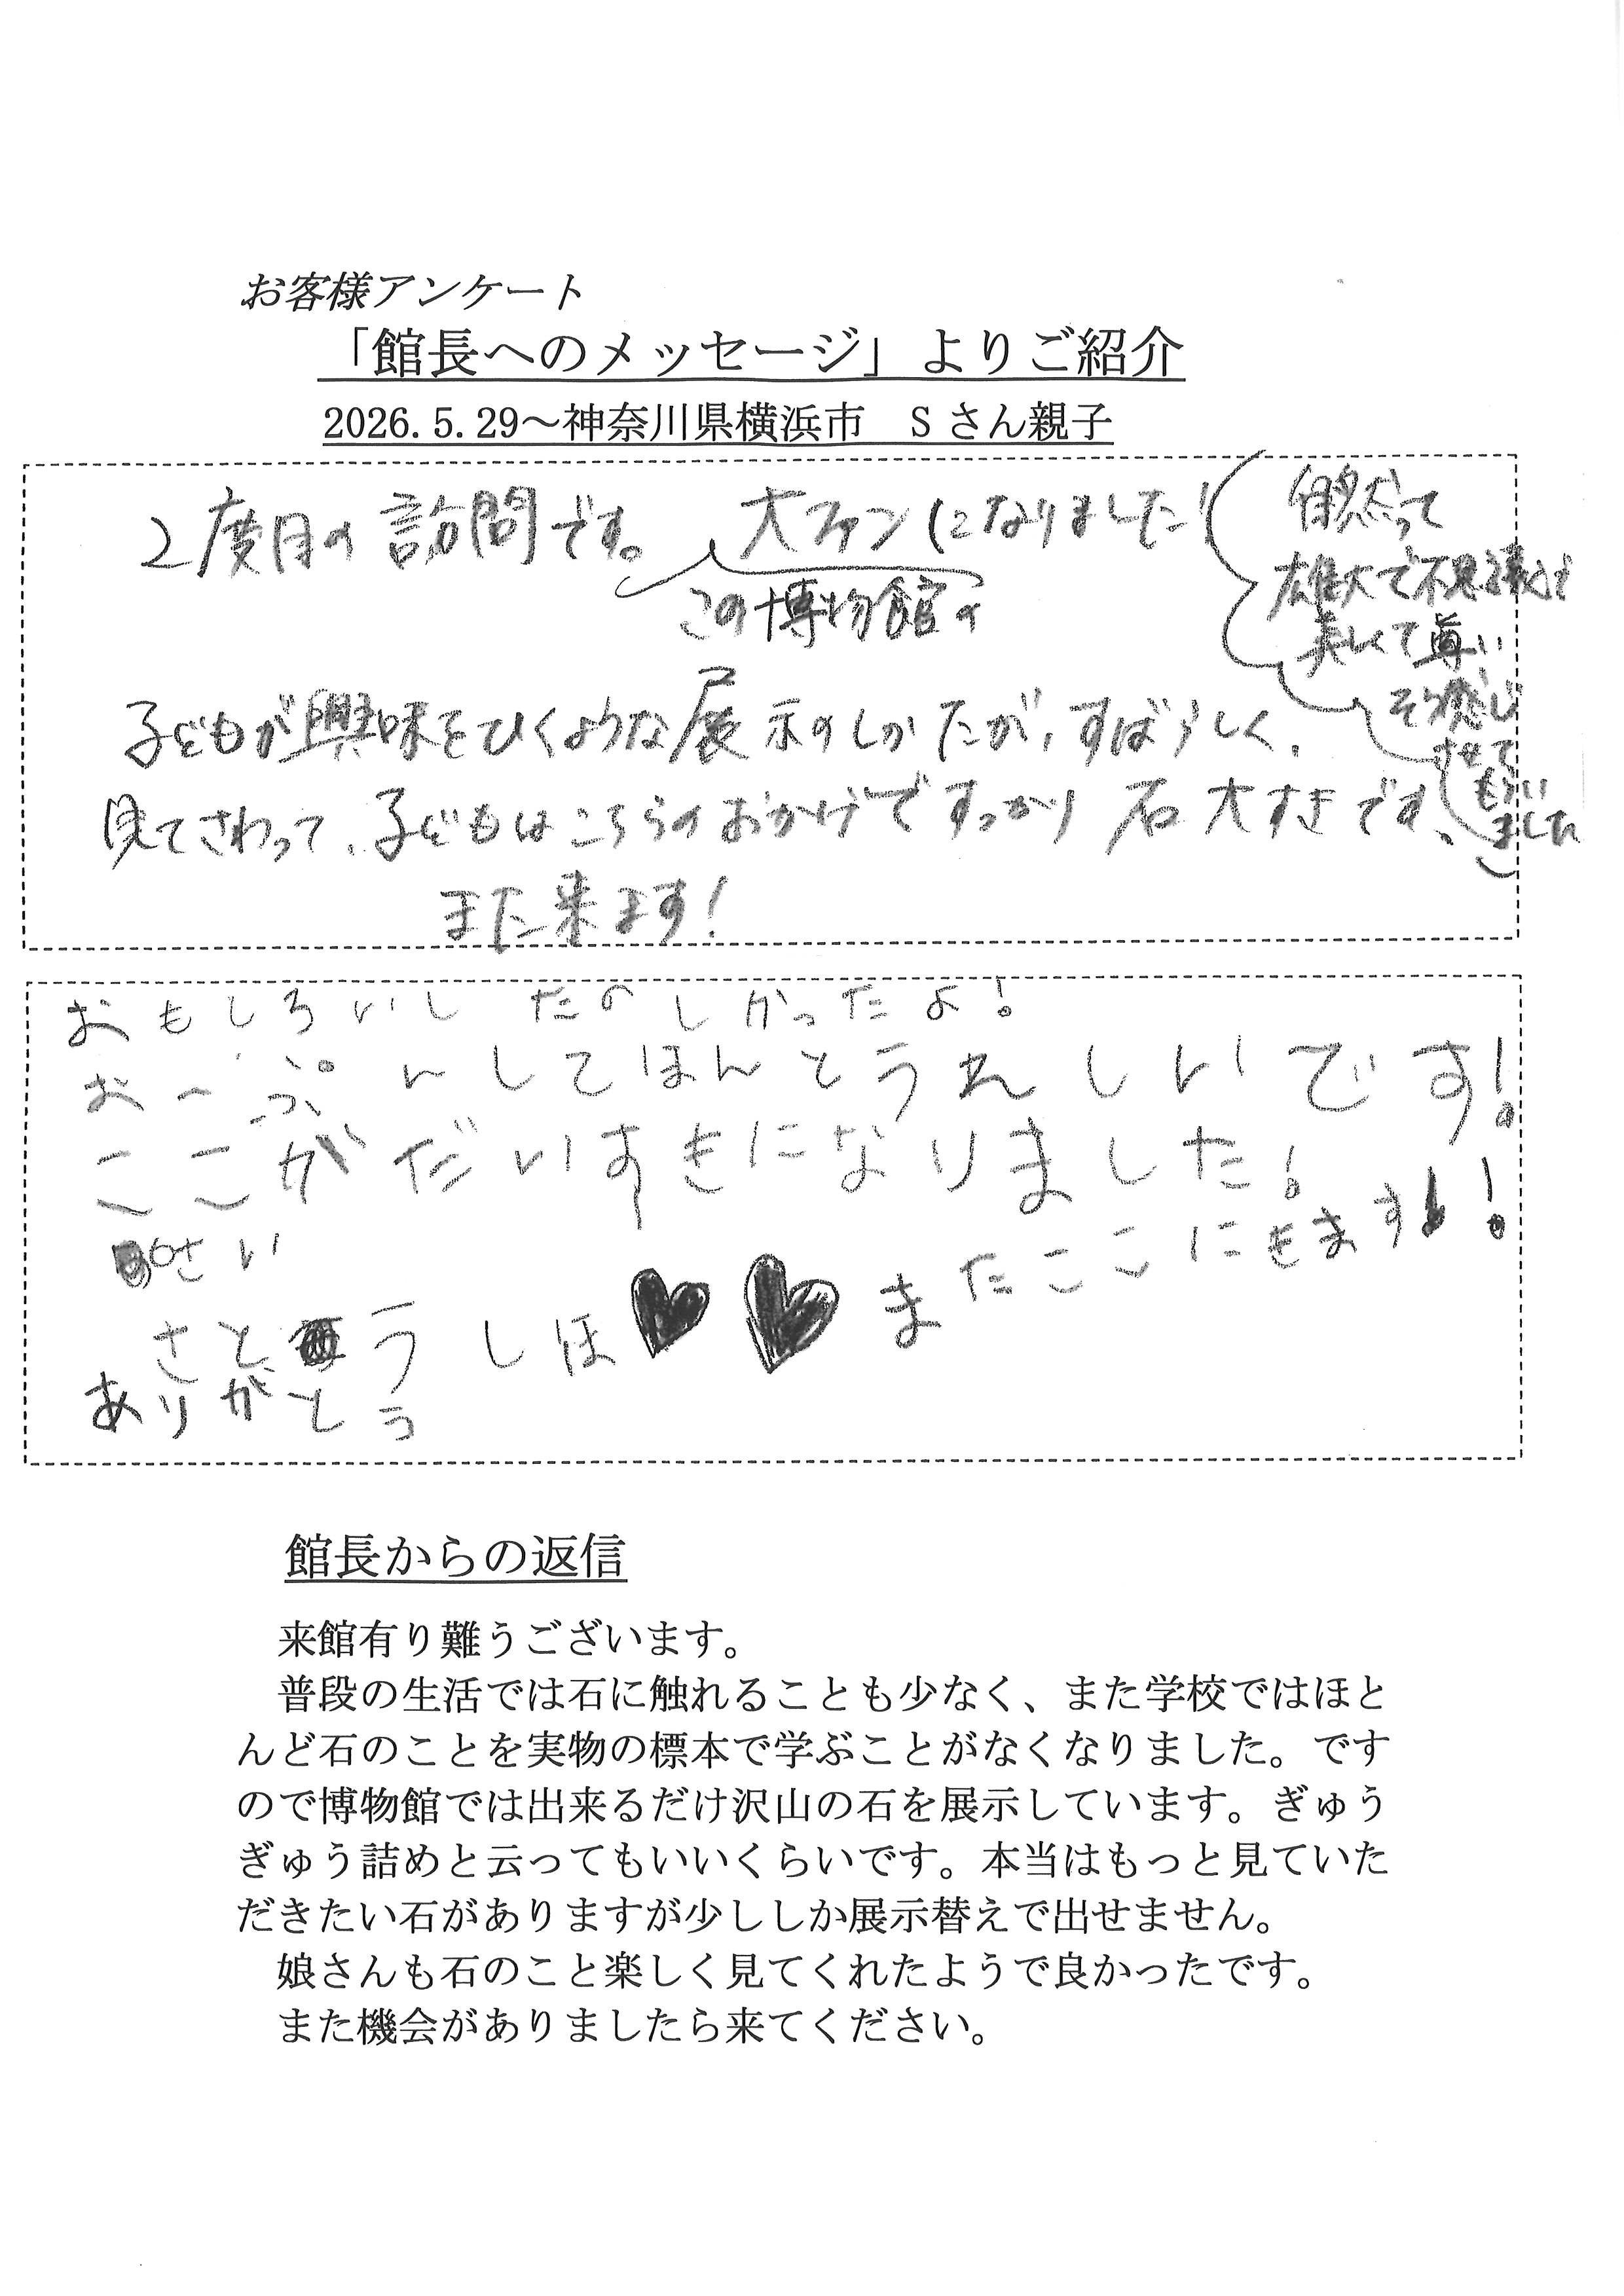 お客様アンケート
「館長へのメッセージ」よりご紹介
2026.5.29～神奈川県横浜市　Sさん親子
2度目の訪問です。大ファンになりました!
この博物館の
(自然って
雄大で不思議で
美しくて尊い
そう感じ
させて
もらい
ました)
子どもが興味をひくような展示のしかたが、すばらしく、
見てさわって、子どもはこちらのおかげですっかり石大すきです、
また来ます!
おもしろいし たのしかったよ!
おーぷんしてほんとうれしいです!
ここがだいすきになりました!
6さい
さとうしほ
またここにきます!!
ありがとう
館長からの返信
来館有り難うございます。
普段の生活では石に触れることも少なく、また学校ではほと
んど石のことを実物の標本で学ぶことがなくなりました。です
ので博物館では出来るだけ沢山の石を展示しています。ぎゅう
ぎゅう詰めと云ってもいいくらいです。本当はもっと見ていた
だきたい石がありますが少ししか展示替えで出せません。
娘さんも石のこと楽しく見てくれたようで良かったです。
また機会がありましたら来てください。